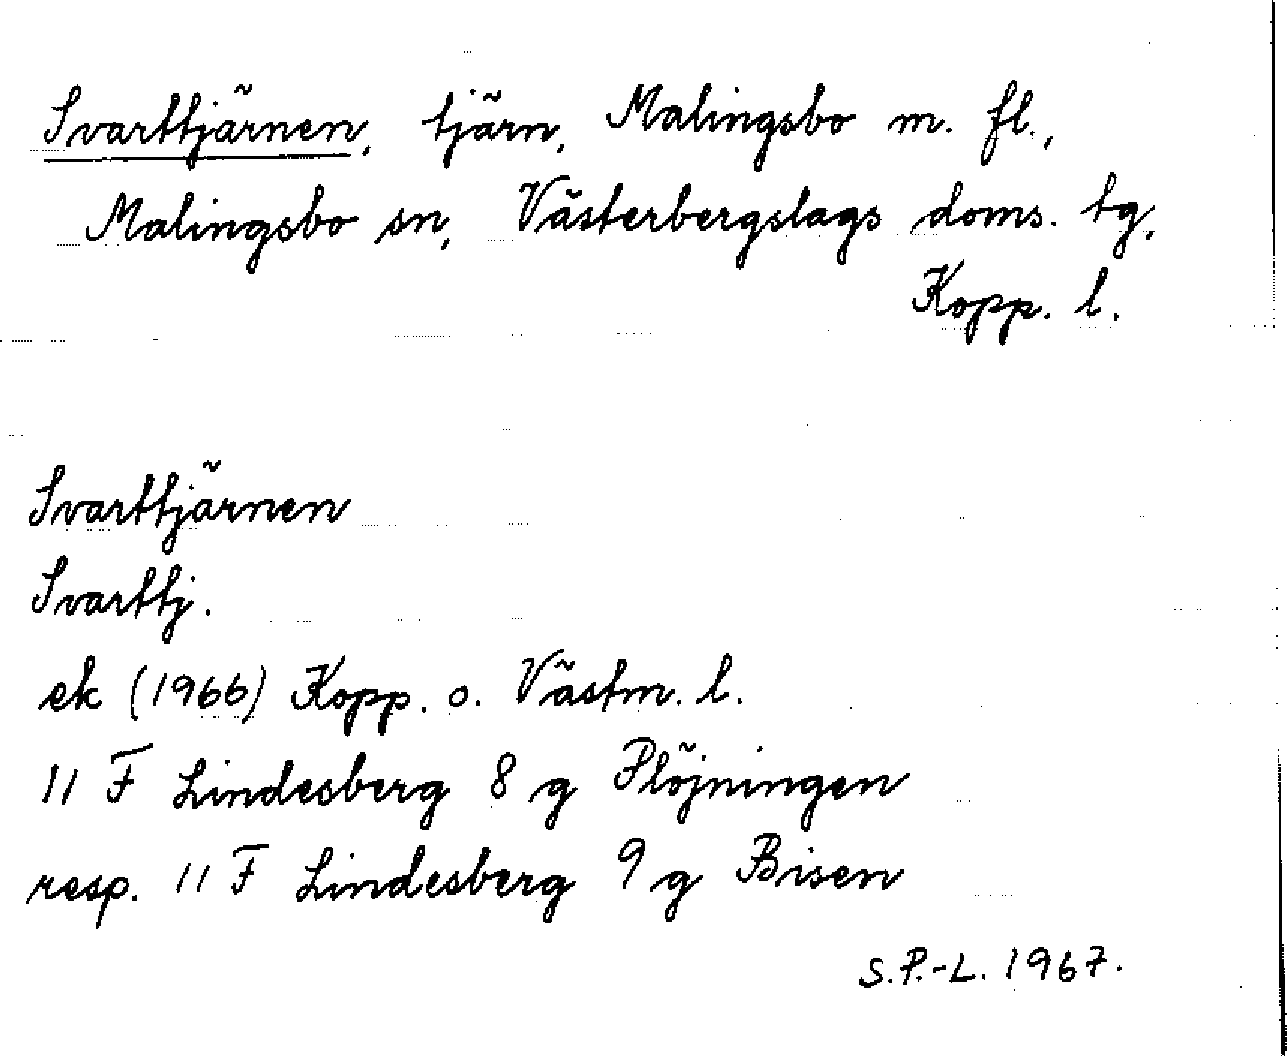 Svarttjärnen, tjärn, Malingsbo m. fl.,
Malingsbo sn, Västerbergslags doms. tg,
Kopp. l.
Svarttjärnen
Svarttj.
ek (1966) Kopp. o. Västm. l.
11 F Lindesberg 8 g Plöjningen
resp. 11 F Lindesberg 9 g Bisen
S.P.-L. 1967.